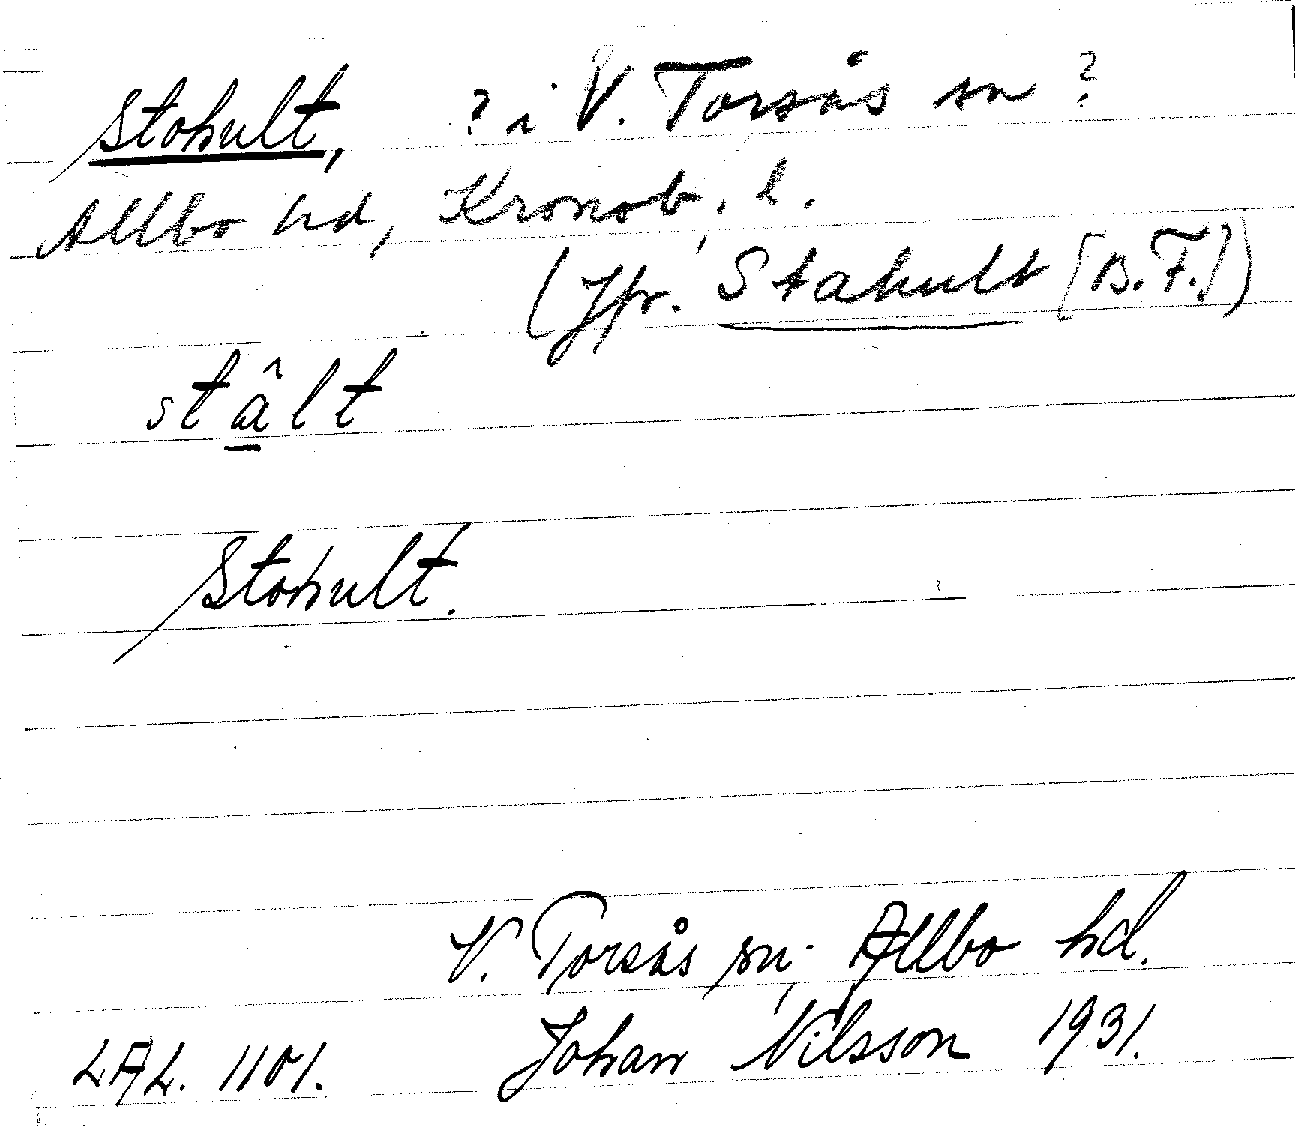 Stohult, ? i V. Torsås sn ?
Allbo hd, Kronob. l.
(Jfr. Stahult [B.F.])
stâlt
Stohult.
V. Torsås sn, Allbo hd.
LAL. 1101. Johan Nilsson 1931.